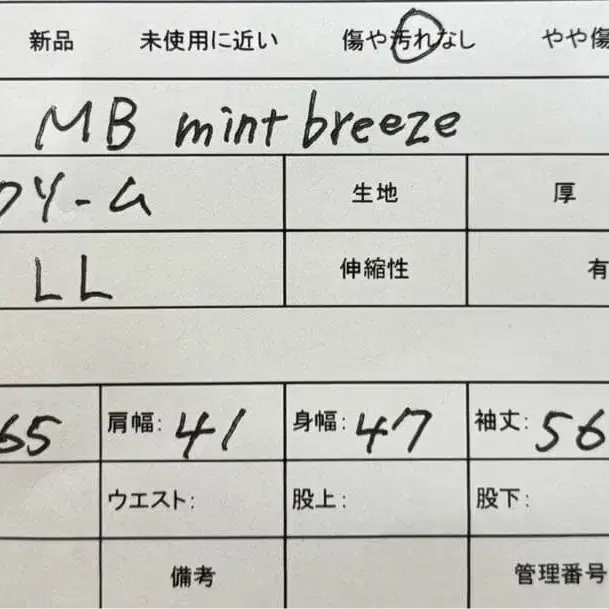 新品 未使用に近い 傷や汚れなし やや傷
MB mint breeze
クリーム 生地 厚
LL 伸縮性 有
65 肩幅: 41 身幅: 47 袖丈: 56
ウエスト: 股上: 股下:
備考 管理番号